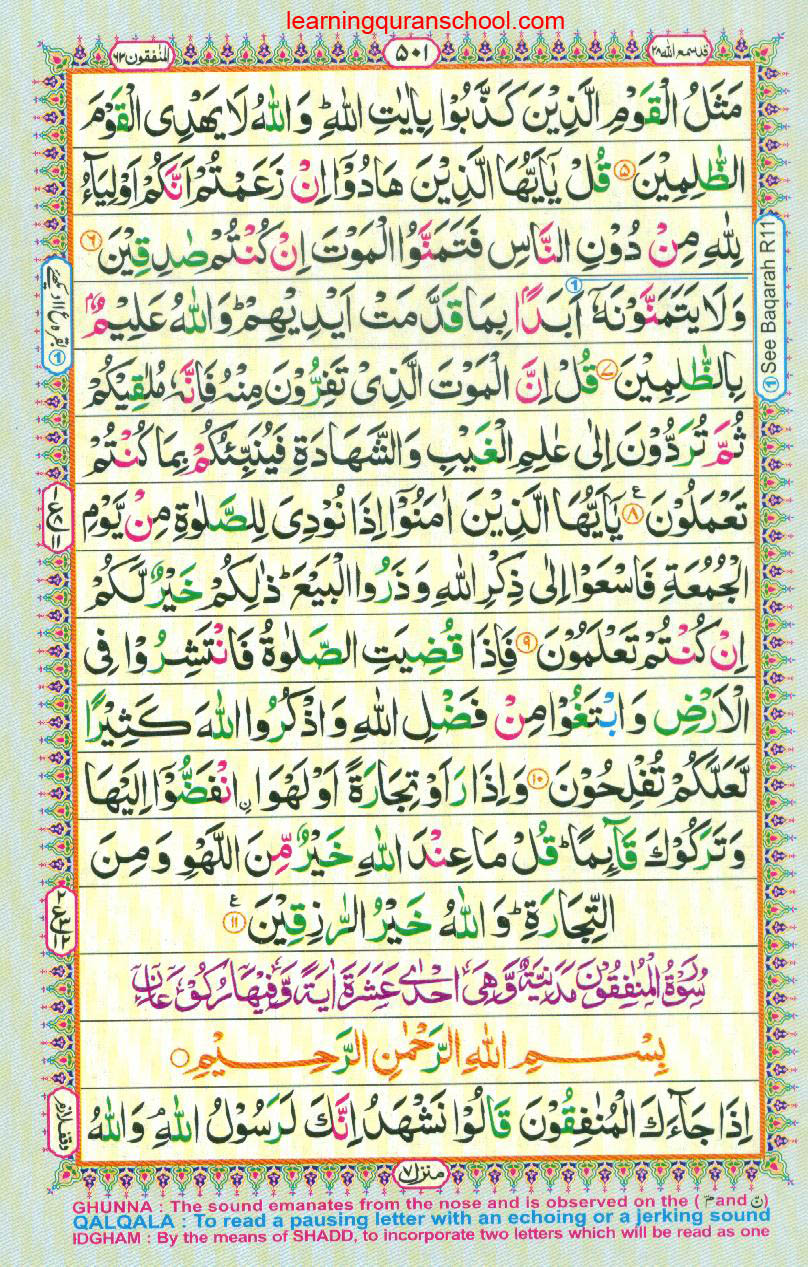 learningquranschool.com
قد سمع الله ۲۸
۵۰۱
المنٰفقون ۶۳
مَثَلُ الْقَوْمِ الَّذِيْنَ كَذَّبُوْا بِاٰيٰتِ اللّٰهِ ؕ وَاللّٰهُ لَا يَهْدِى الْقَوْمَ
الظّٰلِمِيْنَ ۵ قُلْ يٰۤاَيُّهَا الَّذِيْنَ هَادُوْۤا اِنْ زَعَمْتُمْ اَنَّكُمْ اَوْلِيَآءُ
لِلّٰهِ مِنْ دُوْنِ النَّاسِ فَتَمَنَّوُا الْمَوْتَ اِنْ كُنْتُمْ صٰدِقِيْنَ ۶
وَلَا يَتَمَنَّوْنَهٗۤ اَبَدًۢا بِمَا قَدَّمَتْ اَيْدِيْهِمْ ؕ وَاللّٰهُ عَلِيْمٌۢ
بِالظّٰلِمِيْنَ ۷ قُلْ اِنَّ الْمَوْتَ الَّذِىْ تَفِرُّوْنَ مِنْهُ فَاِنَّهٗ مُلٰقِيْكُمْ
ثُمَّ تُرَدُّوْنَ اِلٰى عٰلِمِ الْغَيْبِ وَالشَّهَادَةِ فَيُنَبِّئُكُمْ بِمَا كُنْتُمْ
تَعْمَلُوْنَ ۸ يٰۤاَيُّهَا الَّذِيْنَ اٰمَنُوْۤا اِذَا نُوْدِىَ لِلصَّلٰوةِ مِنْ يَّوْمِ
الْجُمُعَةِ فَاسْعَوْا اِلٰى ذِكْرِ اللّٰهِ وَذَرُوا الْبَيْعَ ؕ ذٰلِكُمْ خَيْرٌ لَّكُمْ
اِنْ كُنْتُمْ تَعْلَمُوْنَ ۹ فَاِذَا قُضِيَتِ الصَّلٰوةُ فَانْتَشِرُوْا فِى
الْاَرْضِ وَابْتَغُوْا مِنْ فَضْلِ اللّٰهِ وَاذْكُرُوا اللّٰهَ كَثِيْرًا
لَّعَلَّكُمْ تُفْلِحُوْنَ ۱۰ وَاِذَا رَاَوْ تِجَارَةً اَوْ لَهْوَا ۨانْفَضُّوْۤا اِلَيْهَا
وَتَرَكُوْكَ قَآئِمًا ؕ قُلْ مَا عِنْدَ اللّٰهِ خَيْرٌ مِّنَ اللَّهْوِ وَمِنَ
التِّجَارَةِ ؕ وَاللّٰهُ خَيْرُ الرّٰزِقِيْنَ ۱۱
سُوْرَةُ الْمُنٰفِقُوْنَ مَدَنِيَّةٌ وَّهِىَ اِحْدٰى عَشَرَةَ اٰيَةً وَّفِيْهَا رُكُوْعَانِ
بِسْمِ اللّٰهِ الرَّحْمٰنِ الرَّحِيْمِ
اِذَا جَآءَكَ الْمُنٰفِقُوْنَ قَالُوْا نَشْهَدُ اِنَّكَ لَرَسُوْلُ اللّٰهِ ۘ وَاللّٰهُ
① See Baqarah R11
منزل ۷
GHUNNA : The sound emanates from the nose and is observed on the ( مّ and نّ )
QALQALA : To read a pausing letter with an echoing or a jerking sound
IDGHAM : By the means of SHADD, to incorporate two letters which will be read as one